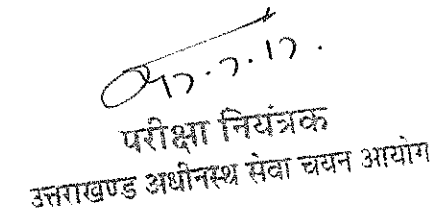 17.7.17.
परीक्षा नियंत्रक
उत्तराखण्ड अधीनस्थ सेवा चयन आयोग